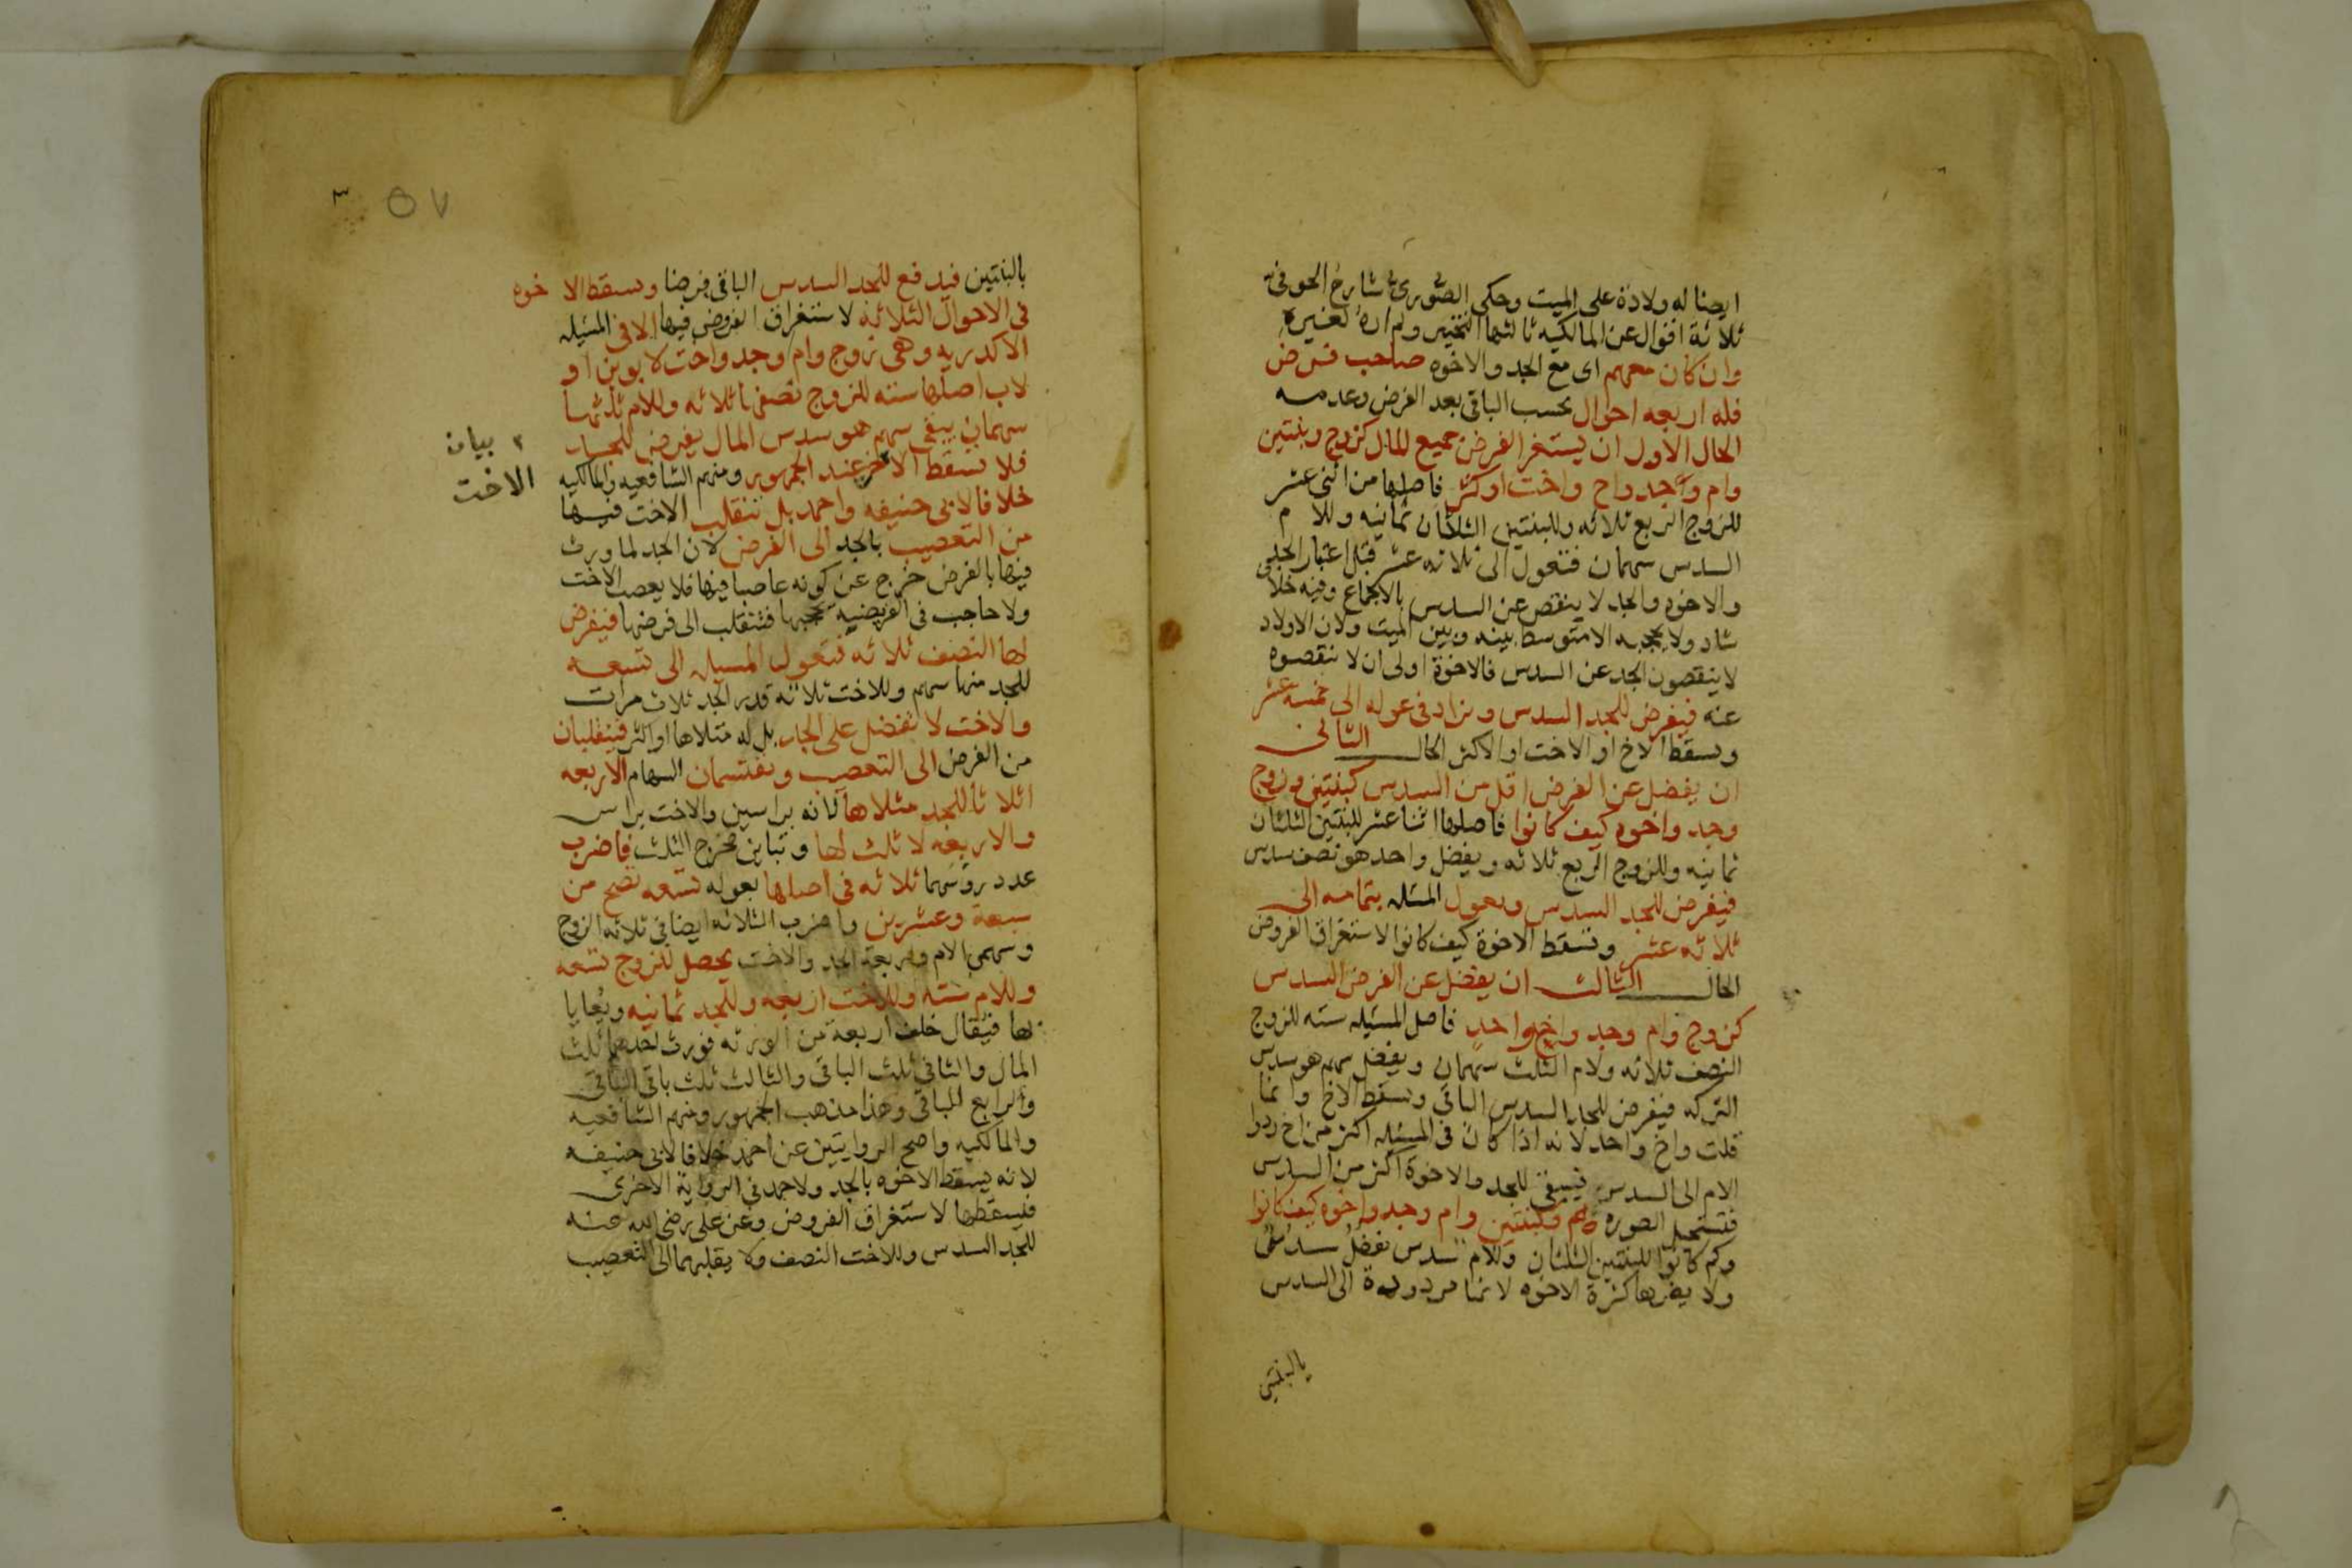 ايضا له ولادة على الميت وحكى الصوري شارح الحوفي
ثلاثة اقوال عن المالكيه ثالثها التخيير ولم اره لغيره
وان كان معهم اى مع الجد والاخوه صاحب فرض
فله اربعه احوال بحسب الباقي بعد الفرض وعدمه
الحال الاول ان يستغر الفرض جميع المال كزوج وبنتين
وام وجد واخ واخت او كثر فاصلها من اثنى عشر
للزوج الربع ثلاثه وللبنتين الثلثان ثمانيه وللام
السدس سهمان فتعول الى ثلاثه عشر قبل اعتبار الجد
والاخوه والجد لا ينقص عن السدس بالاجماع وفيه خلا
شاد ولا يحجبه الا متوسط بينه وبين الميت ولان الاولاد
لا ينقصون الجد عن السدس فالاخوة اولى ان لا ننقصوه
عنه فيفرض للجد السدس ويزاد في عوله الى خمسه عشر
ويسقط الاخ او الاخت او الاكثر الحال الثاني
ان يفضل عن الفرض اقل من السدس كبنتين وزوج
وجد واخوه كيف كانوا فاصلها اثنا عشر للبنتين الثلثان
ثمانيه وللزوج الربع ثلاثه ويفضل واحد هو نصف سدس
فيفرض للجد السدس وبعول المسله بتمامه الى
ثلاثه عشر وتسقط الاخوة كيف كانوا لاستغراق الفروض
الحال الثالث ان يفضل عن الفرض السدس
كزوج وام وجد واخ واحد فاصل المسيله سته للزوج
النصف ثلاثه ولام الثلث سهمان ويفضل سهم هو سدس
التركه فيفرض للجد السدس الباقي ويسقط الاخ وانما
قلت واخ واحد لانه اذا كان في المسيله اكثر من اخ ردوا
الام الى السدس فيبقى للجد والاخوة اكثر من السدس
فتستحيل الصوره وكبنتين وام وجد واخوه كيف كانوا
وكم كانوا للبنتين الثلثان وللام سدس يفضل سدس
ولا يضرها كثرة الاخوه لانها مردودة الى السدس
بالبنتين
٣ ٥٧
بالبنتين فيدفع للجد السدس الباقي فرضا ويسقط الاخوه
في الاحوال الثلاثه لاستغراق الفروض فيها الا في المسيله
الاكدريه وهي زوج وام وجد واخت لابوين او
لاب اصلها سته للزوج نصفها ثلاثه وللام ثلثها
سهمان يبقى سهم هو سدس المال يفرض للجد
فلا تسقط الاخت عند الجمهور ومنهم الشافعيه والمالكيه
بيان
الاخت
خلافا لابي حنيفه واحمد بل تنقلب الاخت فيها
من التعصيب بالجد الى الفرض لان الجد لما ورث
فيها بالفرض خرج عن كونه عاصبا فيها فلا يعصب الاخت
ولا حاجب في الفريضيه يحجبها فتنقلب الى فرضها فيفرض
لها النصف ثلاثه فتعول المسيله الى تسعه
للجد منها سهم وللاخت ثلاثه قدر الجد ثلاث مرات
والاخت لا تفضل على الجد بل له مثلاها او اكثر فينقلبان
من الفرض الى التعصيب ويقتسمان السهام الاربعه
اثلاثا للجد مثلاها لانه براسين والاخت براس
والاربعه لا ثلث لها وتباين مخرج الثلث فاضرب
عدد روسهما ثلاثه في اصلها بعوله تسعه تصح من
سبعة وعشرين واضرب الثلاثه ايضا في ثلاثه الزوج
وسهمي الام واربعة الجد والاخت يحصل للزوج تسعه
وللام سته وللاخت اربعه وللجد ثمانيه ويعايا
بها فيقال خلف اربعة من الورثه فورث احدهم ثلث
المال والثاني ثلث الباقي والثالث ثلث باقي الباقي
والرابع الباقي وهذا مذهب الجمهور ومنهم الشافعيه
والمالكيه واصح الروايتين عن احمد خلافا لابي حنيفه
لانه يسقط الاخوه بالجد ولاحمد في الرواية الاخرى
فيسقطها لاستغراق الفروض وعن على رضي الله عنه
للجد السدس وللاخت النصف ولا يقلبهما الى التعصيب